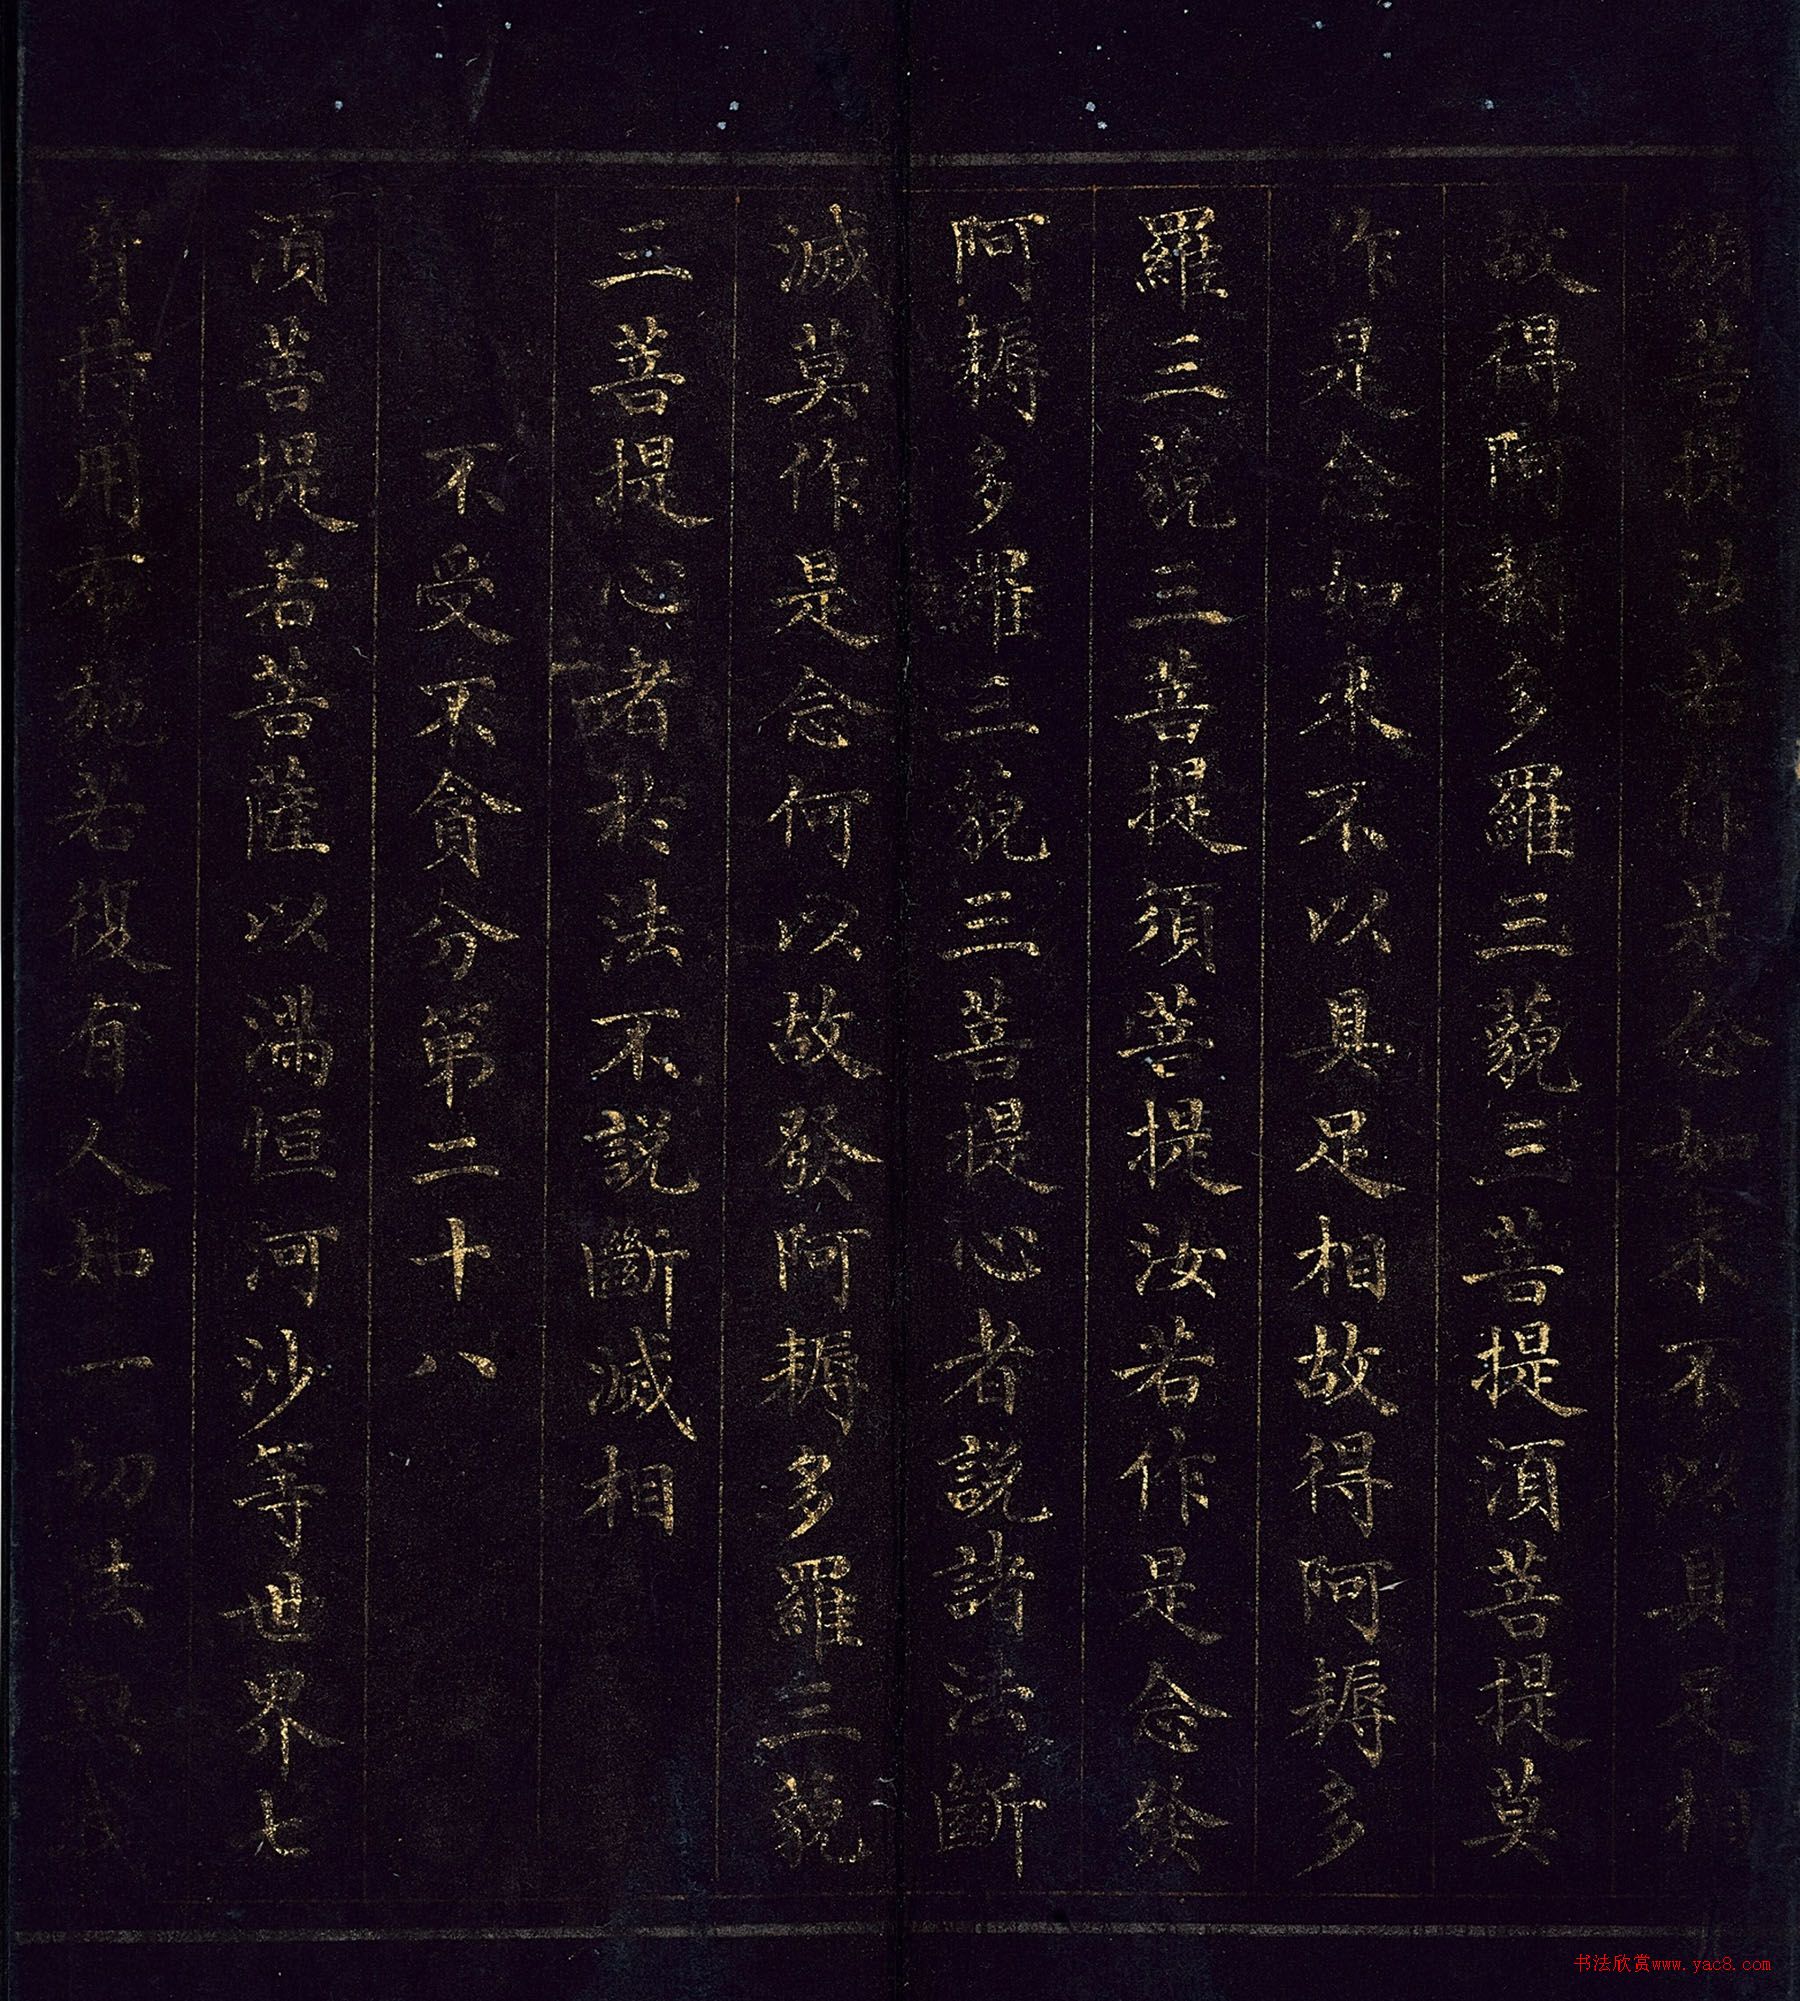 須菩提汝若作是念如来不以具足相
故得阿耨多羅三藐三菩提須菩提莫
作是念如来不以具足相故得阿耨多
羅三藐三菩提須菩提汝若作是念發
阿耨多羅三藐三菩提心者說諸法斷
滅莫作是念何以故發阿耨多羅三藐
三菩提心者於法不說斷滅相
不受不貪分第二十八
須菩提若菩薩以滿恒河沙等世界七
寶持用布施若復有人知一切法無我
书法欣赏www.yac8.com